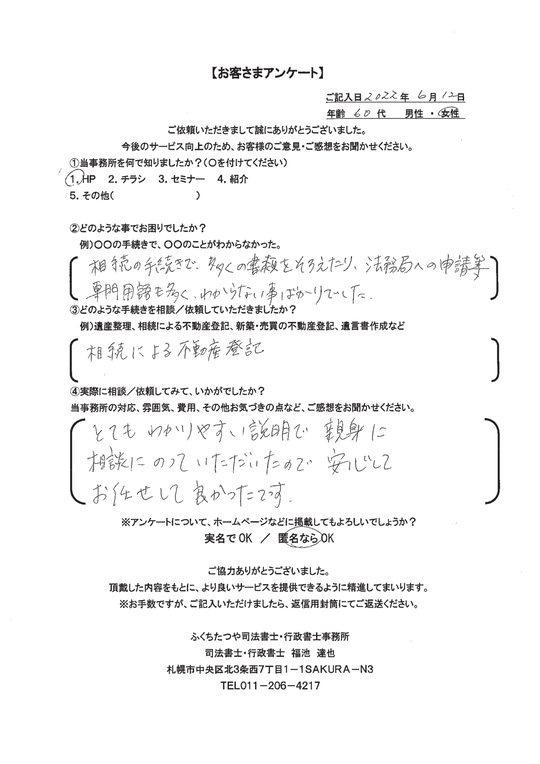 【お客さまアンケート】
ご記入日 2022年 6月 12日
年齢 60代 男性・女性
ご依頼いただきまして誠にありがとうございました。
今後のサービス向上のため、お客様のご意見・ご感想をお聞かせください。
①当事務所を何で知りましたか?(○を付けてください)
1. HP 2. チラシ 3. セミナー 4. 紹介
5. その他( )
②どのような事でお困りでしたか?
例)○○の手続きで、○○のことがわからなかった。
相続の手続きで、多くの書類をそろえたり、法務局への申請等
専門用語も多く、わからない事ばかりでした.
③どのような手続きを相談/依頼していただきましたか?
例)遺産整理、相続による不動産登記、新築・売買の不動産登記、遺言書作成など
相続による不動産登記
④実際に相談/依頼してみて、いかがでしたか?
当事務所の対応、雰囲気、費用、その他お気づきの点など、ご感想をお聞かせください。
とても わかりやすい説明で 親身に
相談にのっていただいたので 安心して
お任せして良かったです.
※アンケートについて、ホームページなどに掲載してもよろしいでしょうか?
実名でOK / 匿名ならOK
ご協力ありがとうございました。
頂戴した内容をもとに、より良いサービスを提供できるように精進してまいります。
※お手数ですが、ご記入いただけましたら、返信用封筒にてご返送ください。
ふくちたつや司法書士・行政書士事務所
司法書士・行政書士 福池 達也
札幌市中央区北3条西7丁目1-1SAKURA-N3
TEL011-206-4217